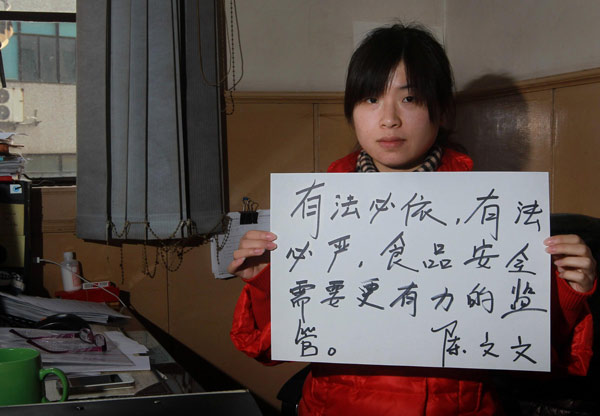 有法必依，有法
必严，食品安全
需要更有力的监
管。 陈文文